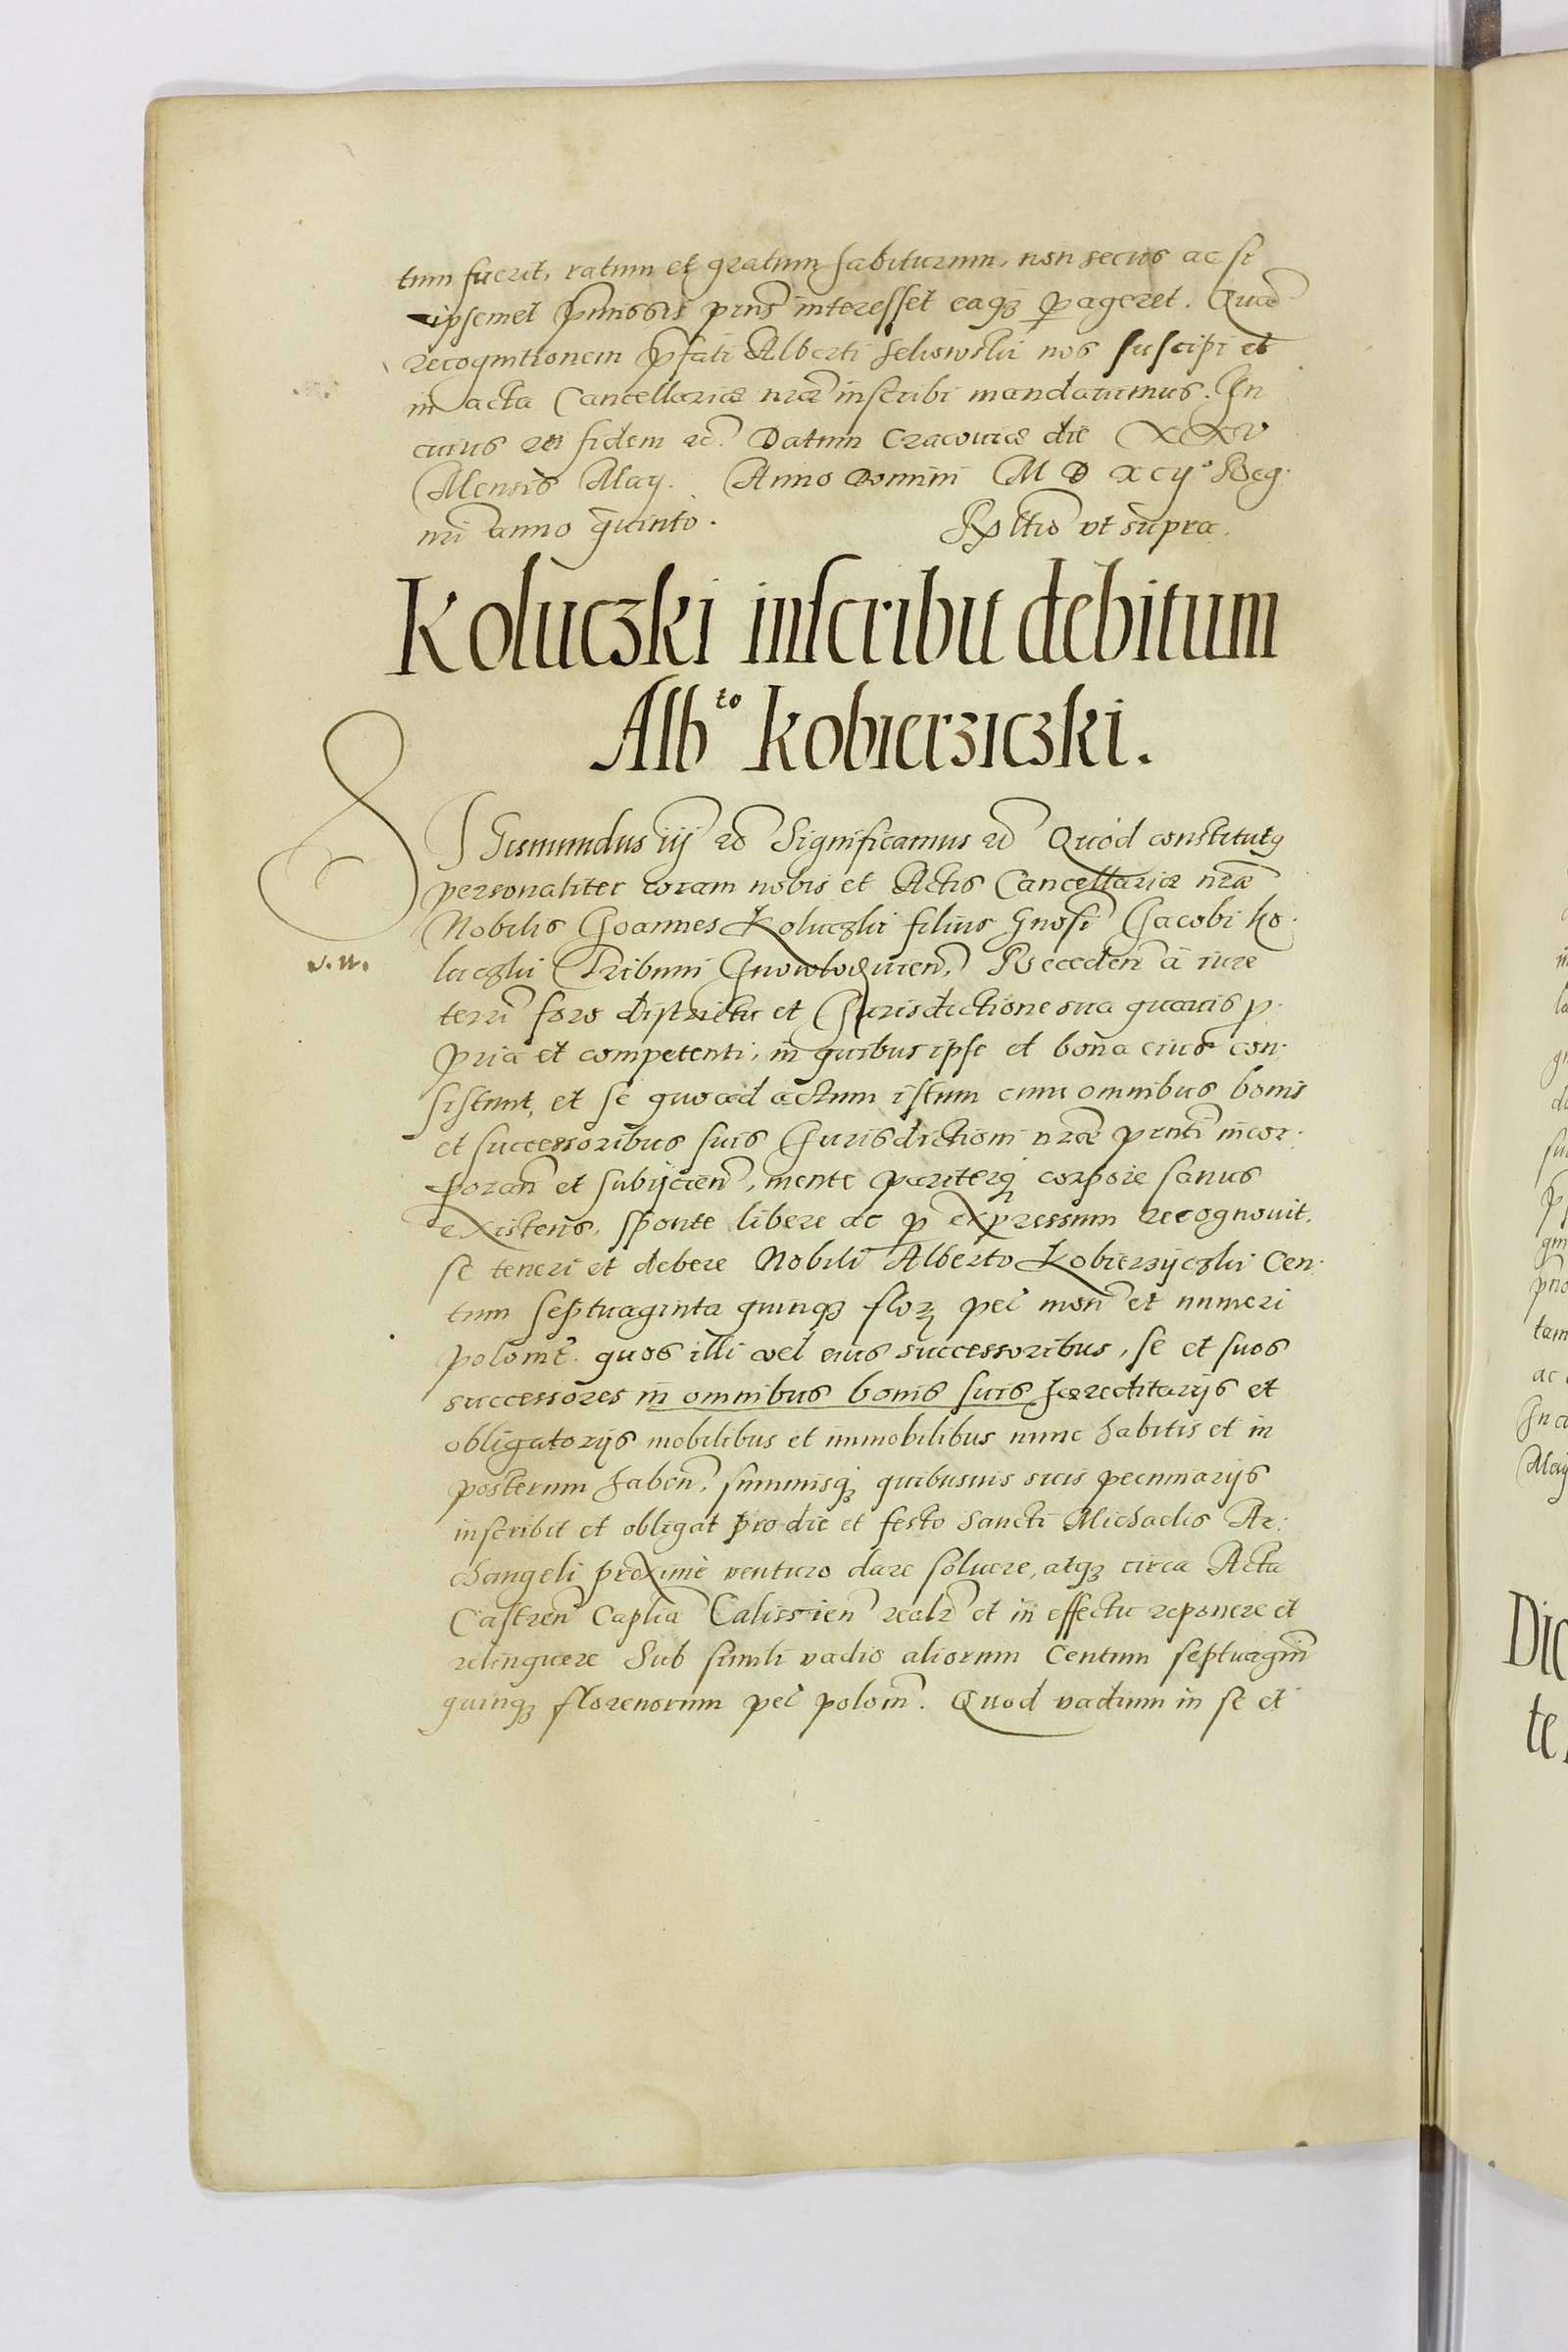 tum fuerit, ratum et gratum habiturum, non secus ac si
ipsemet pmissis pns interesset eaq3 pageret. Qua
recognitionem pfati Alberti Sehowski nos suscipi et
in acta Cancellariæ nræ inscribi mandavimus. In
cuius rei fidem etc. Datum Cracoviæ die XXV
Mensis Maÿ. Anno Domini M D XCij° Reg
ni anno quinto. Rltio ut supra.
Koluczki inscribit debitum
Alb^to Kobierziczki.
SIGismundus iij etc Significamus etc Quod constitutq
personaliter coram nobis et Actis Cancellariæ nræ
Nobilis Joannes Koluczki filius Gnosi Jacobi Ko
luczki Tribuni Receden à iure
terri foro districtu et Jurisdictione sua quavis p
pria et competenti, in quibus ipse et bona eius con
sistunt, et se quoad actum istum cum omnibus bonis
et successoribus suis Jurisdictioni nræ pnti incor
poran et subijcien, mente pariterq corpore sanus
existens, sponte libere ac p expressum recognovit,
se teneri et debere Nobili Alberto Kobierzyczki Cen
tum septuaginta quinq3 flor pel mon et numeri
polonic. quos illi vel eius successoribus, se et suos
successores in omnibus bonis suis hæreditarijs et
obligatorijs mobilibus et immobilibus nunc habitis et in
posterum haben, summisq3 quibusvis suis pecuniarijs
inscribit et obligat pro die et festo Sancti Michaelis Ar
changeli proximè venturo dare solvere, atq3 circa Acta
Castren Caplia Calissien realr et in effectu reponere et
relinquere Sub simili vadio aliorum Centum septuagin
quinq3 florenorum pel polon. Quod vadium in se et